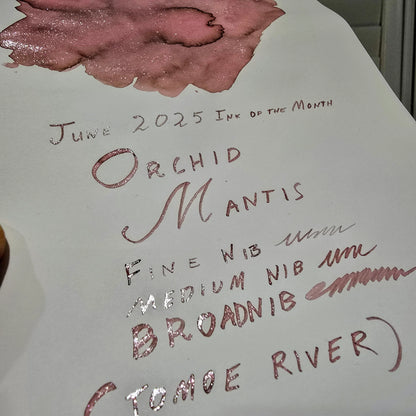 June 2025 Ink of the Month
Orchid
Mantis
Fine Nib
Medium Nib
Broadnib
(Tomoe River)